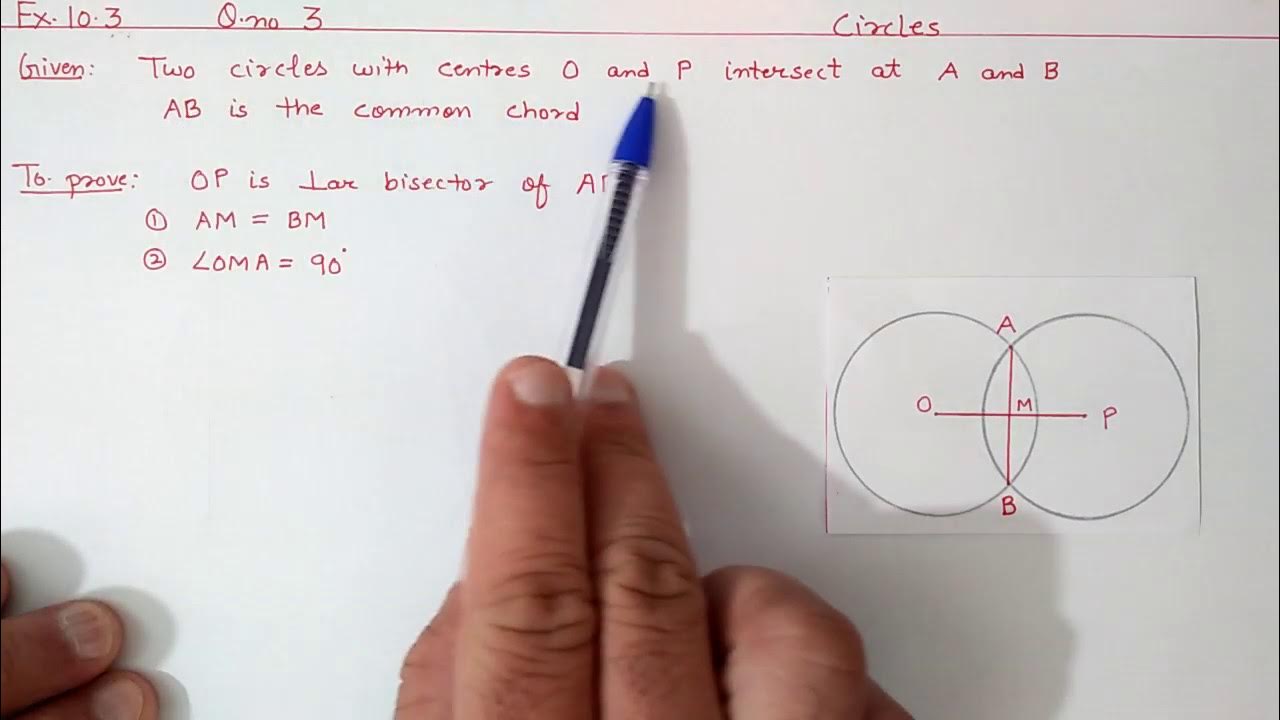 Ex. 10.3 Q.no 3 Circles
Given: Two circles with centres O and P intersect at A and B
AB is the common chord
To prove: OP is ⊥ar bisector of
① AM = BM
② ∠OMA = 90°
A
O M P
B